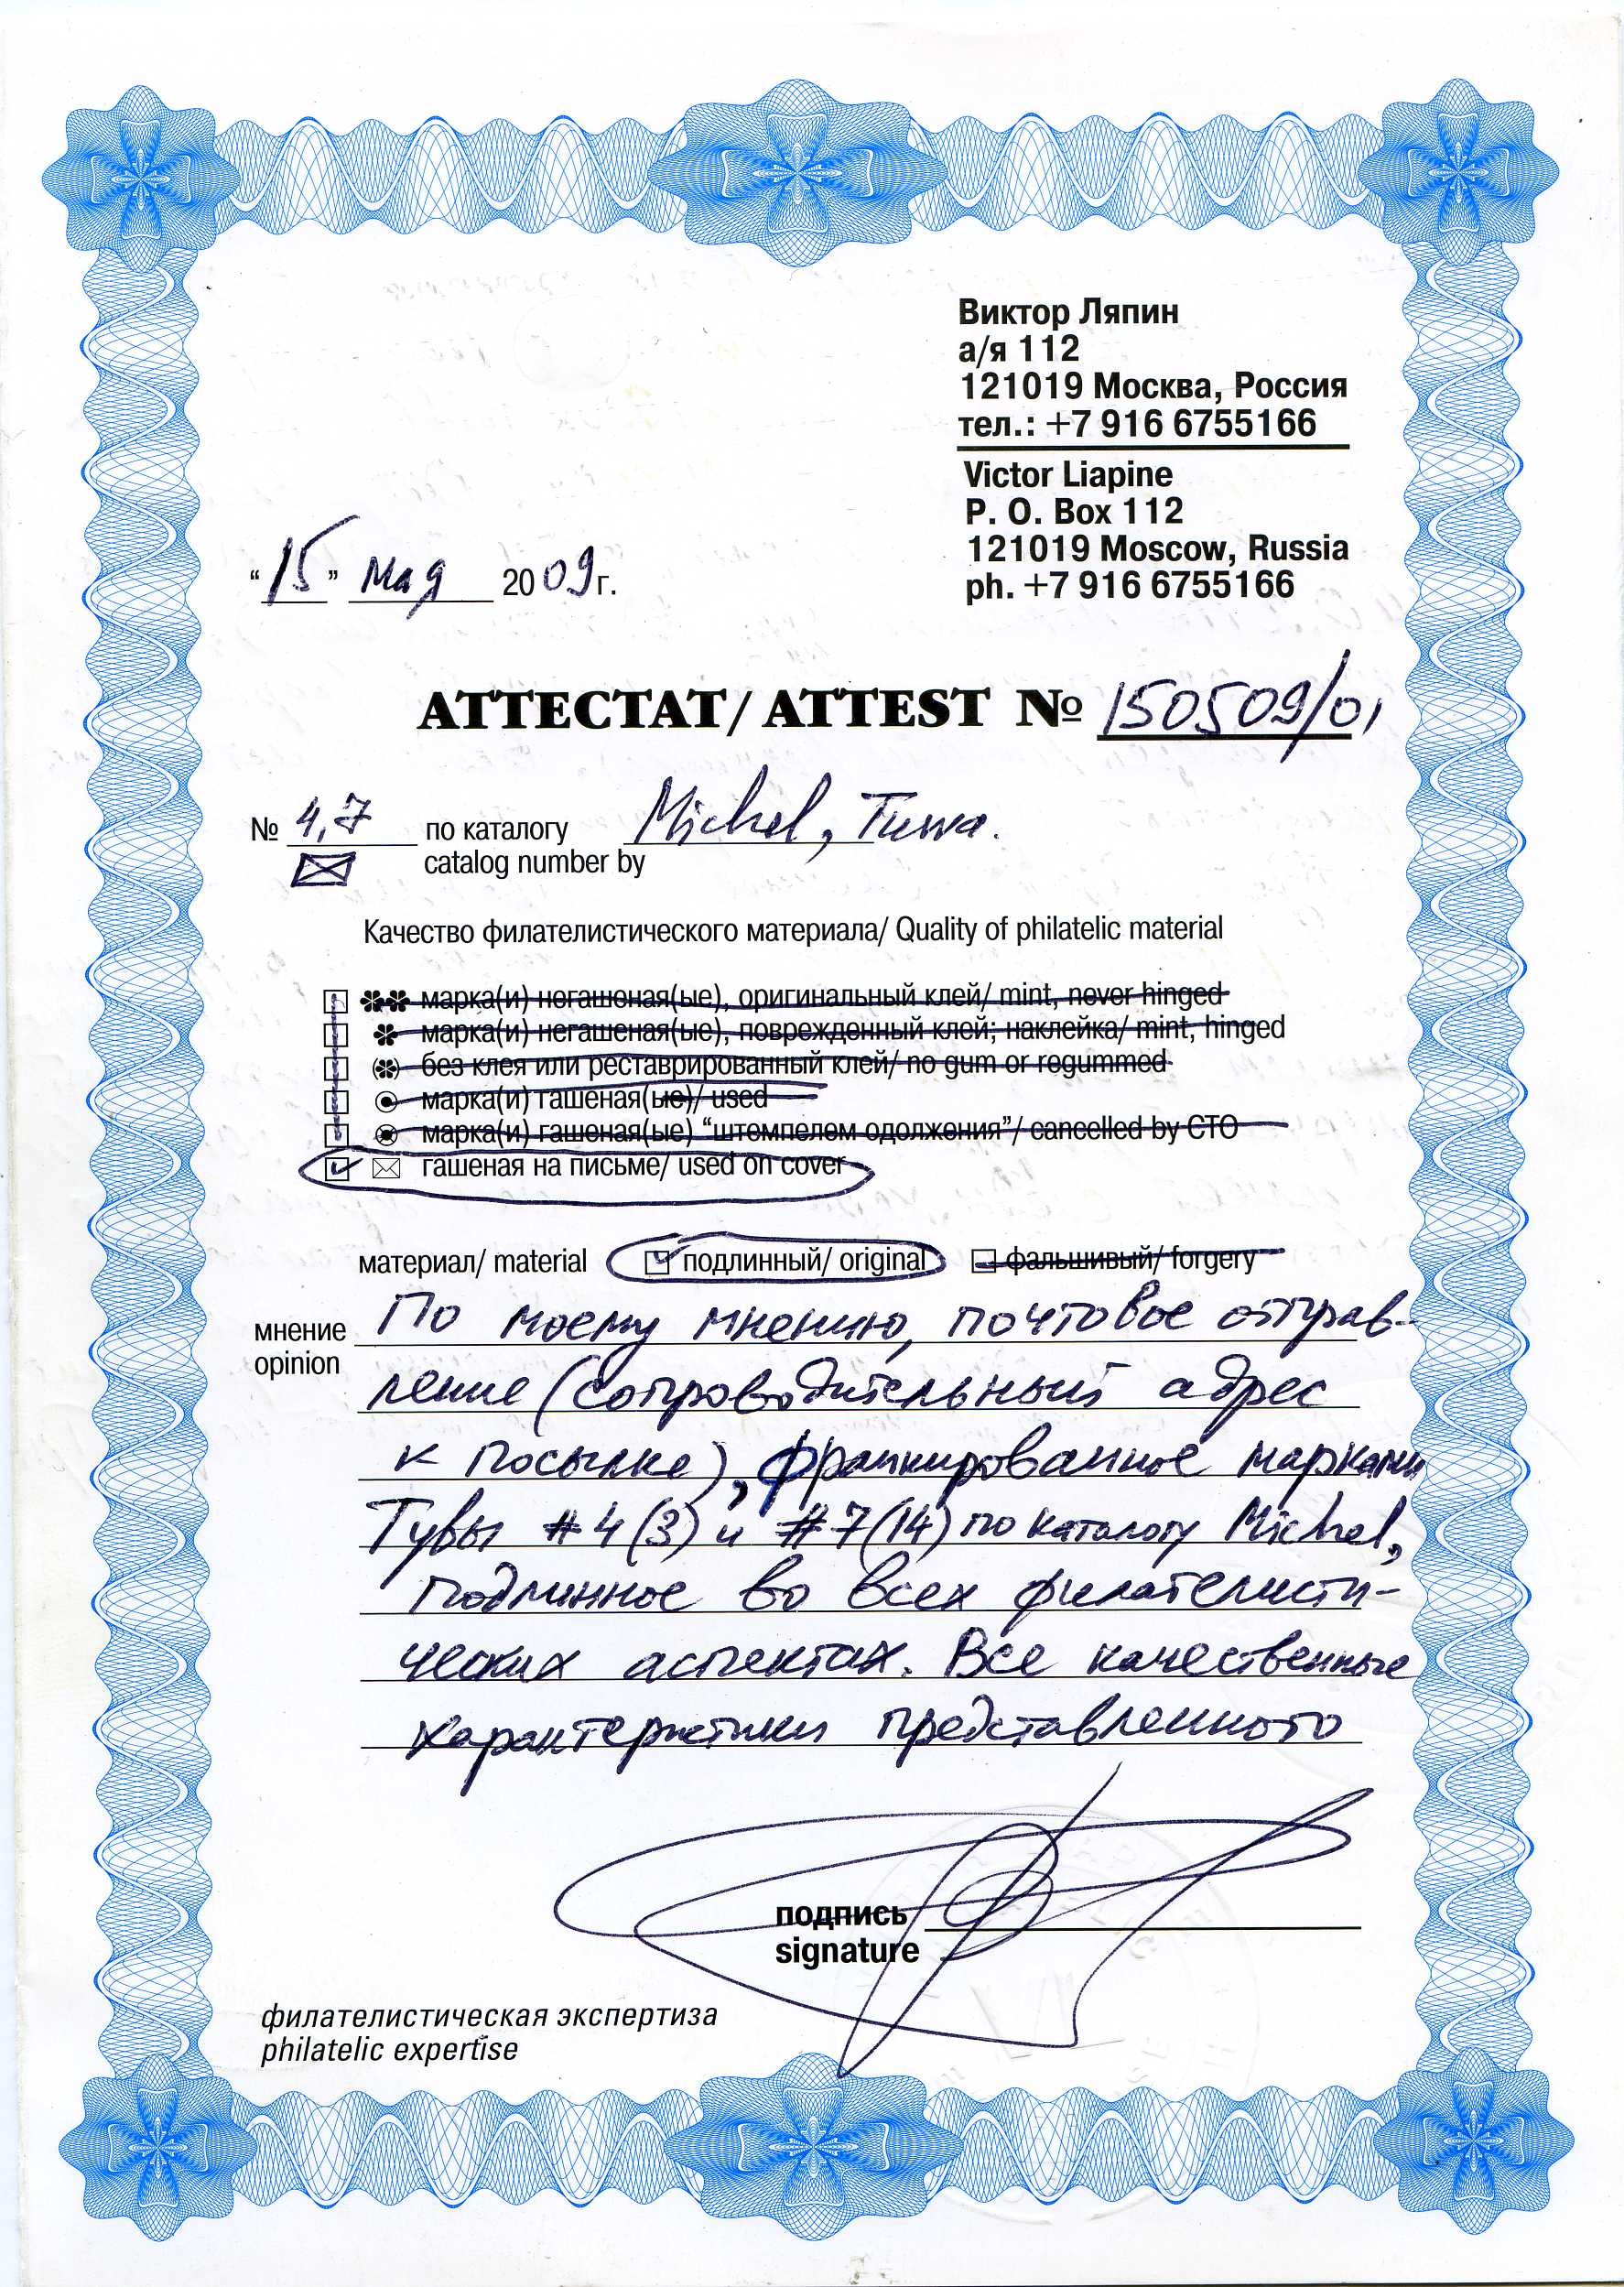 Виктор Ляпин
а/я 112
121019 Москва, Россия
тел.: +7 916 6755166
Victor Liapine
P. O. Box 112
121019 Moscow, Russia
ph. +7 916 6755166
“15” мая 2009г.
АТТЕСТАТ/ ATTEST № 150509/01
№ 4,7 по каталогу Michel, Tuwa.
catalog number by
Качество филателистического материала/ Quality of philatelic material
марка(и) негашеная(ые), оригинальный клей/ mint, never hinged
марка(и) негашеная(ые), поврежденный клей; наклейка/ mint, hinged
без клея или реставрированный клей/ no gum or regummed
марка(и) гашеная(ые)/ used
марка(и) гашеная(ые) “штемпелем одолжения”/ cancelled by CTO
гашеная на письме/ used on cover
материал/ material подлинный/ original фальшивый/ forgery
мнение По моему мнению, почтовое отправ-
opinion
ление (сопроводительный адрес
к посылке), франкированное марками
Тувы #4(3) и #7(14) по каталогу Michel,
подлинное во всех филателисти-
ческих аспектах. Все качественные
характеристики представленного
подпись
signature
филателистическая экспертиза
philatelic expertise